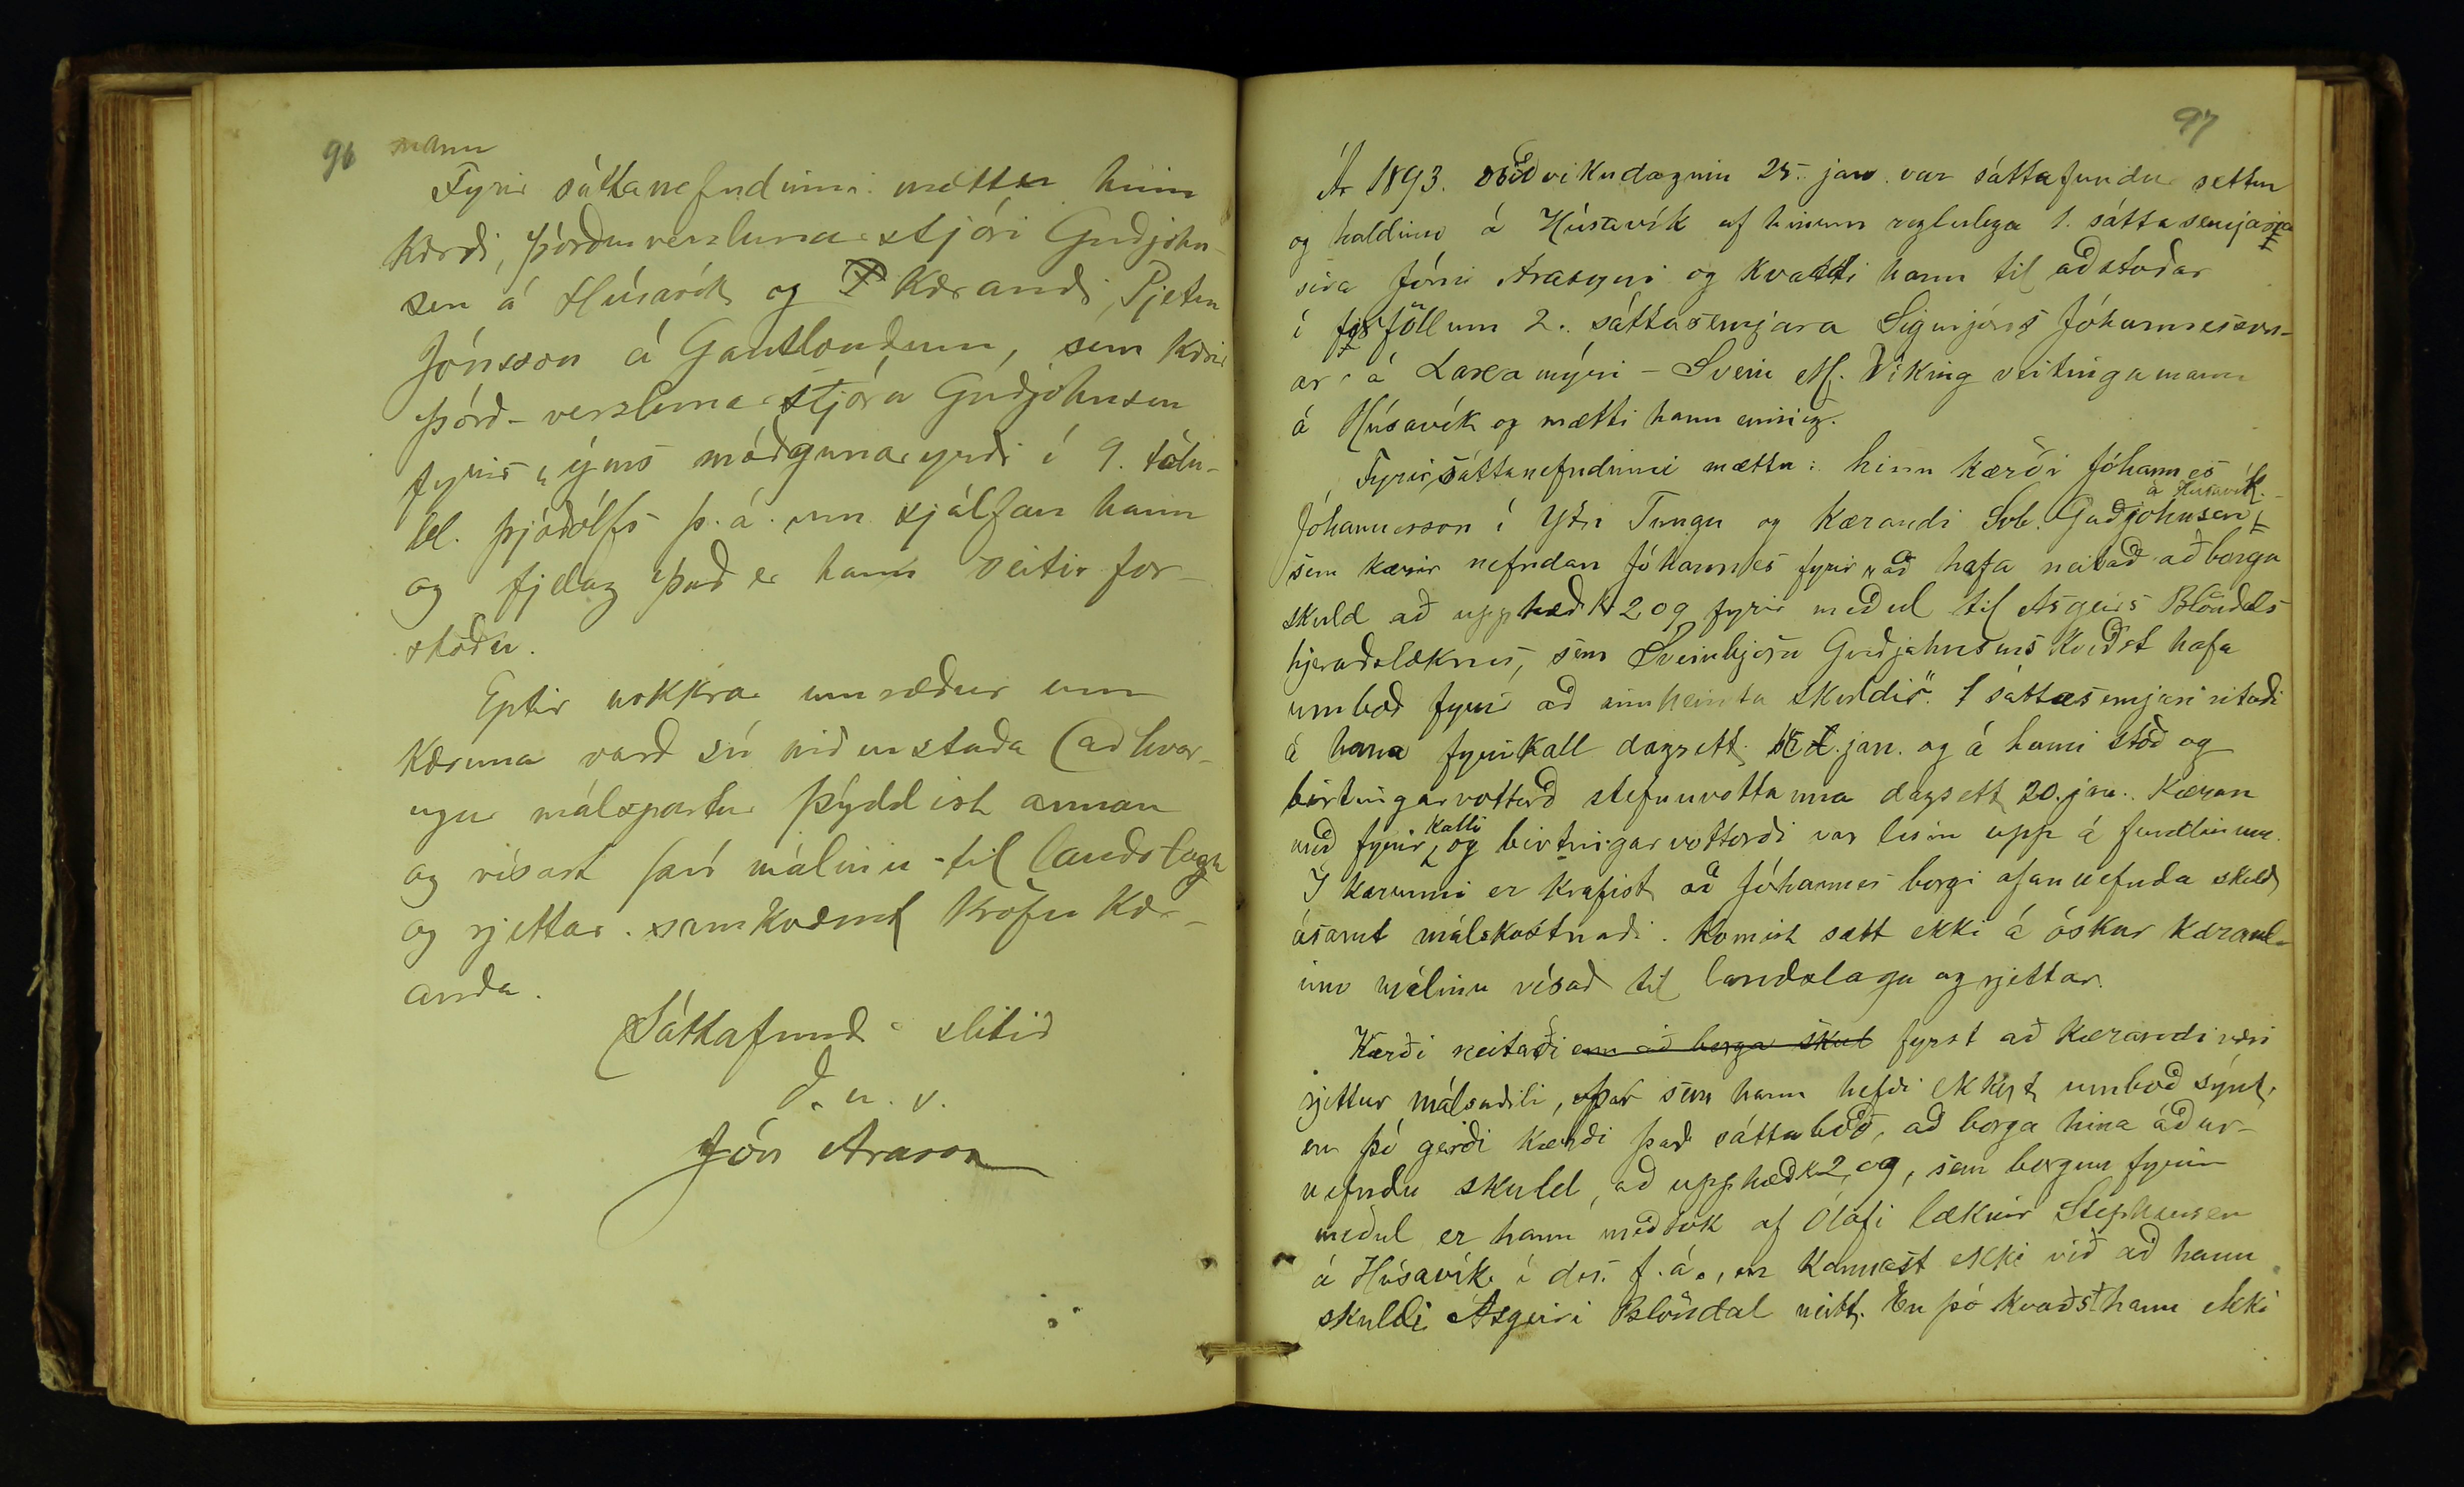 96 mann
Fyrir sáttanefndinni mættu hinn
kærði, Þórður verzlunarstjóri Guðjohn-
sen á Húsavík og kærandi, Pjetur
Jónsson á Gautlöndum, sem kærir
Þórð verzlunarstjóra Guðjohnsen
fyrir „ýms móðgunaryrði í 9. tölu-
bl. Þjóðólfs þ. á. um sjálfan hann
og fjelag það er hann veitir for-
stöðu.
Eptir nokkra umræður um
kæruna varð sú niðurstaða (að hvor-
ugur málspartur þýddist annan
og vísast því málinu til landslaga
og rjettar samkvæmt kröfu kær-
anda.
Sáttafundi slitið
D. u. s.
Jón Arason
97
Ár 1893. Miðvikudaginn 25. jan. var sáttafundur settur
og haldinn á Húsavík af hinum reglulega 1. sáttasemjara
síra Jóni Arasyni og kvaddi hann til aðstoðar
í forföllum 2. sáttasemjara Sigurjóns Jóhannesson-
ar á Laxamýri - Svein M. Víking veitingamann
á Húsavík og mætti hann einnig.
Fyrir sáttanefndinni mættu: hinn kærði Jóhannes
Jóhannesson í Ytri Tungu og kærandi Svb. Guðjohnsen á Húsavík.
sem kærir nefndan Jóhannes fyrir „að hafa neitað að borga
skuld að upphæð kr 2 09 fyrir meðul til Asgeirs Blöndals
hjeraðslæknis, sem Sveinbjörn Guðjohnsens kveðst hafa
umboð fyrir að innheimta skuldir". 1 sáttasemjari ritaði
á hana fyrirkall dagsett jan. og á henni stóð og
birtingarvottorð stefnuvottanna dagsett 20. jan. Kæran
með fyrirkalli og birtingarvottorði var lesin upp á fundinum.
Í kærunni er krafist að Jóhannes borgi ofannefnda skuld
ásamt málskostnaði. Komist sætt ekki á óskar kærand-
inn málinu vísað til landslaga og rjettar.
Kærði neitaði enn að borga skul fyrst að kærandi væri
rjettur málsaðili, þar sem hann hefði ekkert umboð sýnt,
en þó gerði kærði það sáttaboð, að borga hina áður-
nefndu skuld, að upphæð kr 2,09, sem borgun fyrir
meðul er hann meðtók af Ólafi læknir Stephensen
á Húsavík í des. f. á., en kannast ekki við að hann
skuldi Ásgeiri Blöndal neitt. En þó kvaðst hann ekki